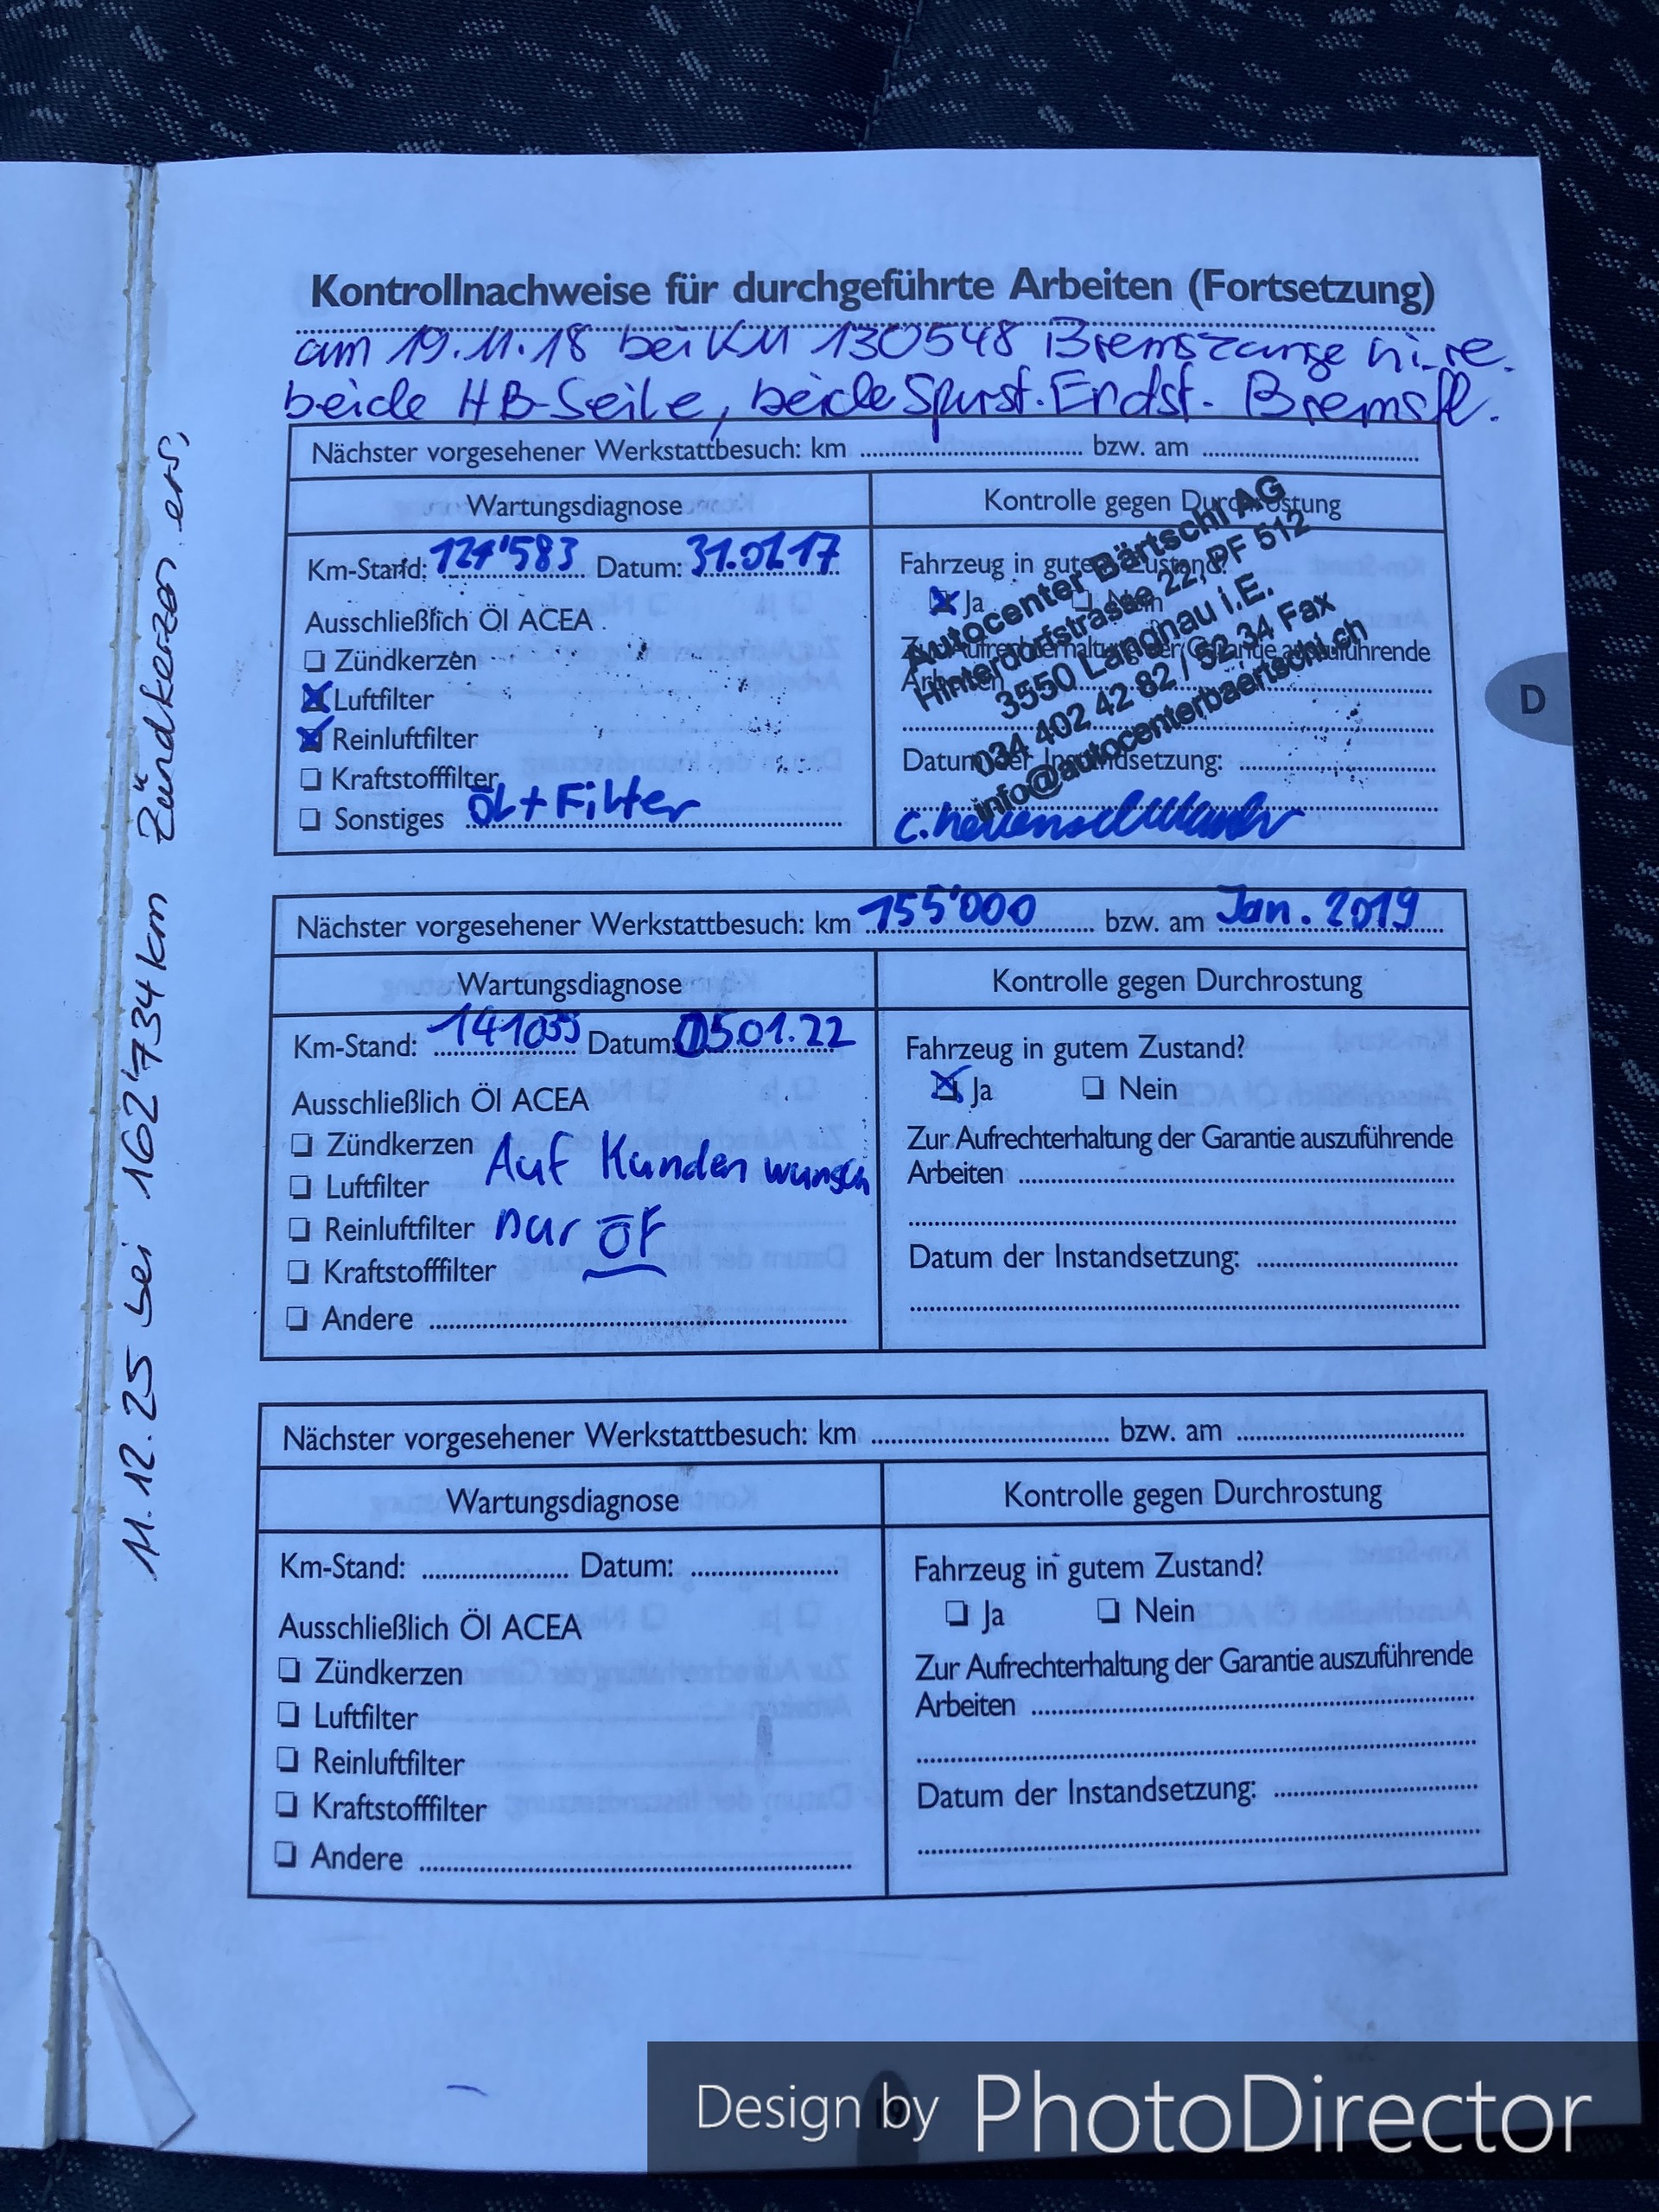 Kontrollnachweise für durchgeführte Arbeiten (Fortsetzung)
am 19.11.18 bei KM 130548 Bremszange hi. re.
beide HB-Seile, beide Spurst. Endst. Bremsfl.
Nächster vorgesehener Werkstattbesuch: km bzw. am
Wartungsdiagnose
Km-Stand: 121'583 Datum: 31.01.17
Ausschließlich Öl ACEA
Zündkerzen
Luftfilter
Reinluftfilter
Kraftstofffilter
Sonstiges ÖL + Filter
Kontrolle gegen Durchrostung
Fahrzeug in gutem Zustand?
Ja Nein
Zur Aufrechterhaltung der Garantie auszuführende
Arbeiten
Datum der Instandsetzung:
Autocenter Bärtschi AG
Hinterdorfstrasse 22, PF 512
3550 Langnau i.E.
034 402 42 82 / 52 34 Fax
info@autocenterbaertschi.ch
Nächster vorgesehener Werkstattbesuch: km 155'000 bzw. am Jan. 2019
Wartungsdiagnose
Km-Stand: Datum: 05.01.22
Ausschließlich Öl ACEA
Zündkerzen
Luftfilter
Reinluftfilter
Kraftstofffilter
Andere
Auf Kundenwunsch
nur ÖF
Kontrolle gegen Durchrostung
Fahrzeug in gutem Zustand?
Ja Nein
Zur Aufrechterhaltung der Garantie auszuführende
Arbeiten
Datum der Instandsetzung:
Nächster vorgesehener Werkstattbesuch: km bzw. am
Wartungsdiagnose
Km-Stand: Datum:
Ausschließlich Öl ACEA
Zündkerzen
Luftfilter
Reinluftfilter
Kraftstofffilter
Andere
Kontrolle gegen Durchrostung
Fahrzeug in gutem Zustand?
Ja Nein
Zur Aufrechterhaltung der Garantie auszuführende
Arbeiten
Datum der Instandsetzung:
11.12.25 bei 162'734 km Zündkerzen ers,
D
Design by PhotoDirector